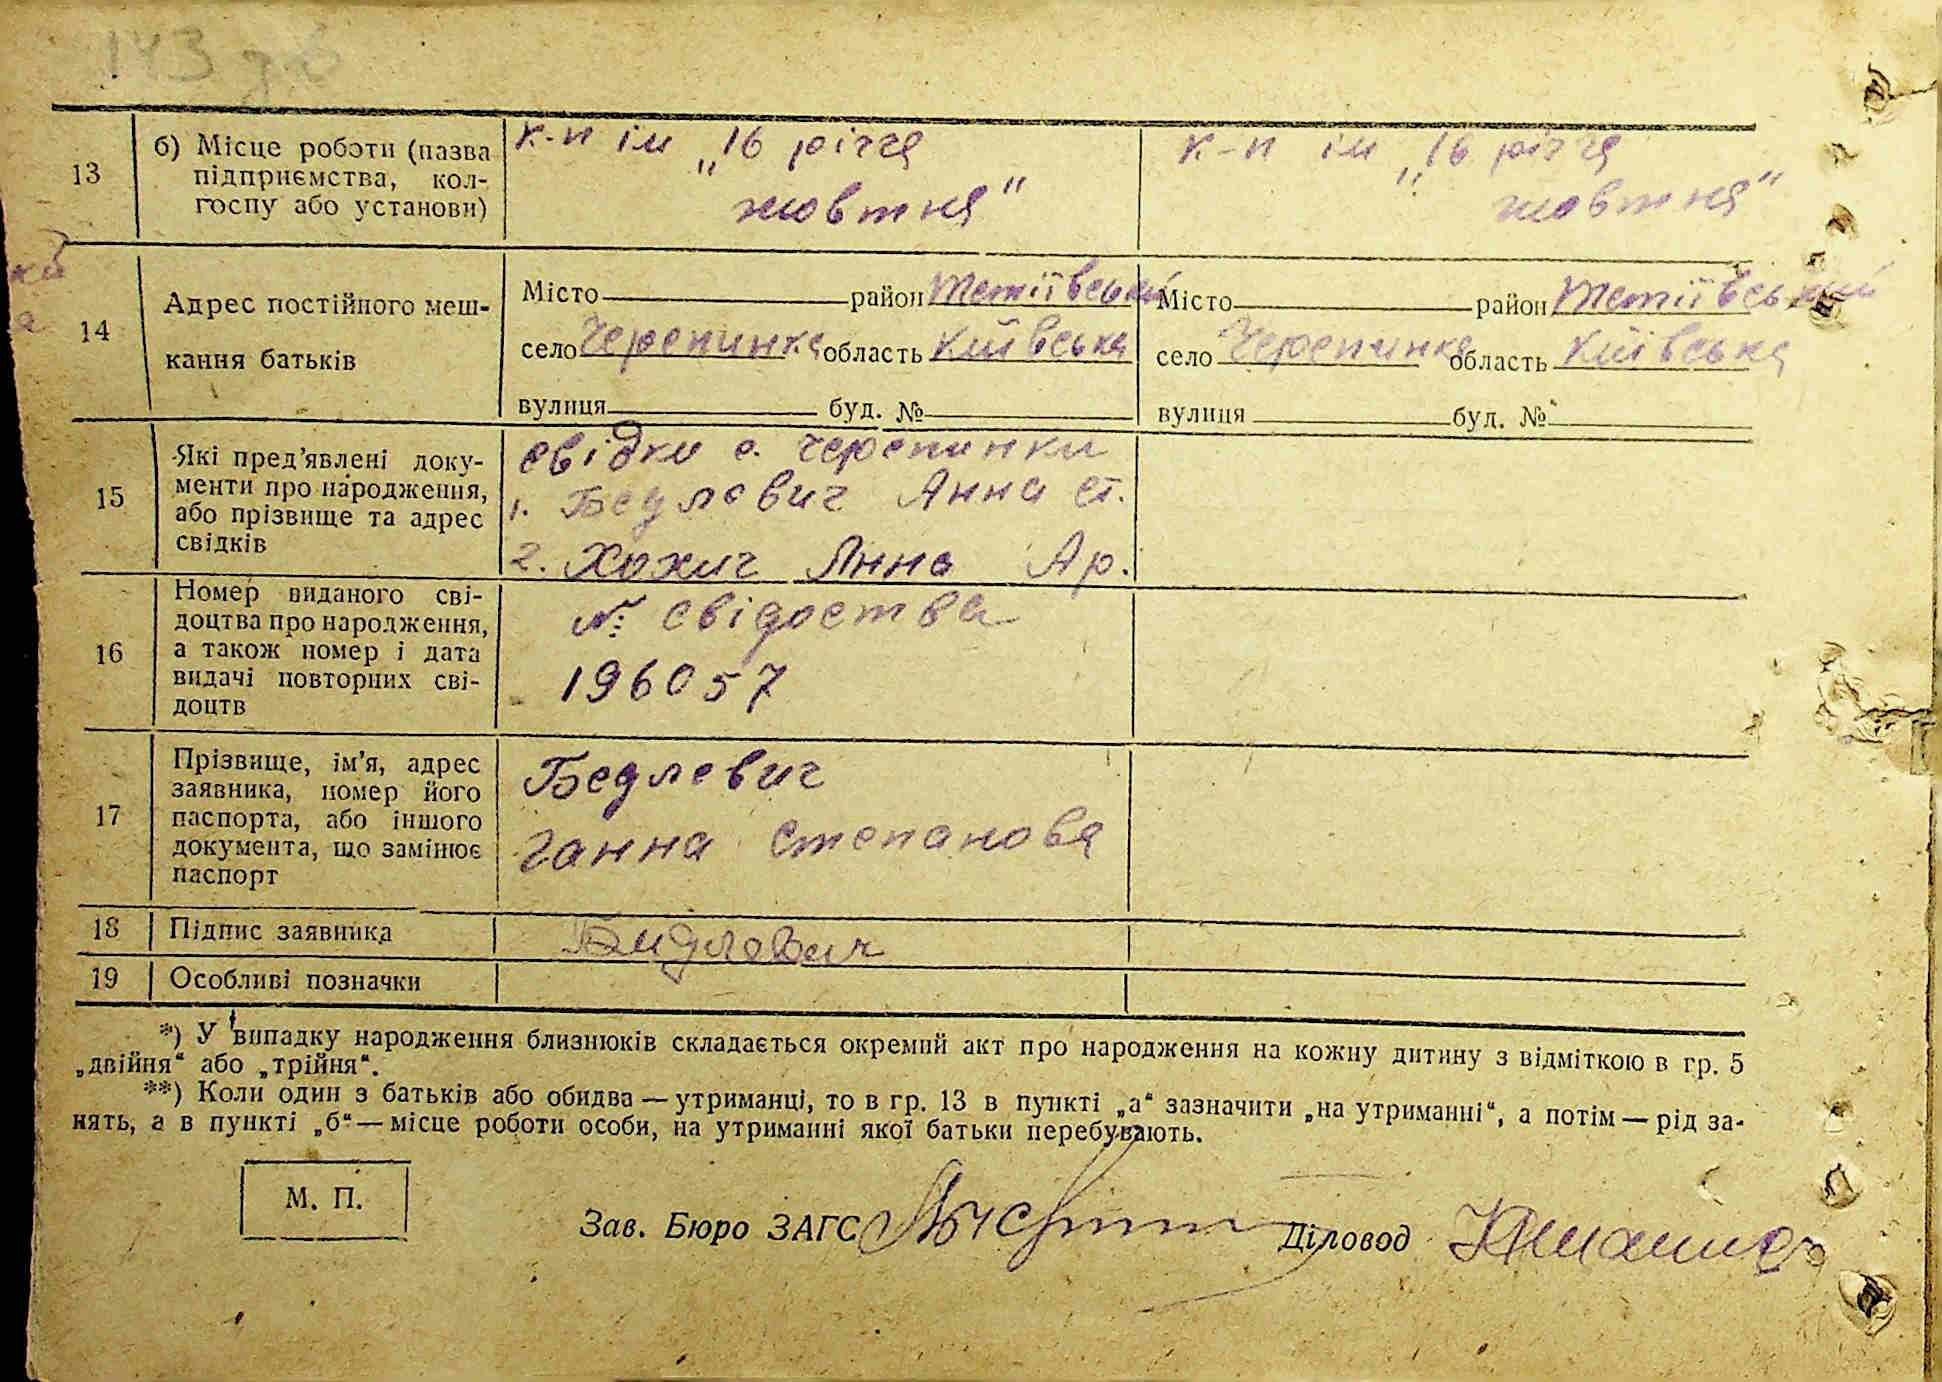 143
13
б) Місце роботи (назва підприємства, колгоспу або установи)
к-п ім „16 річчя
жовтня"
к-п ім „16 річчя
жовтня"
14
Адрес постійного меш-
кання батьків
Місто район Тетіївський
село Черепинка область Київська
вулиця буд. №
Місто район Тетіївський
село Черепинка область Київська
вулиця буд. №
15
Які пред'явлені доку-
менти про народження,
або прізвище та адрес
свідків
свідки с. Черепинки
1. Бедлевич Анна ст.
2. Хожич Анна Ар.
16
Номер виданого сві-
доцтва про народження,
а також номер і дата
видачі повторних сві-
доцтв
№ свідоства
196057
17
Прізвище, ім'я, адрес
заявника, номер його
паспорта, або іншого
документа, що замінює
паспорт
Бедлевич
Ганна Степанова
18 Підпис заявника
Бидлевич
19 Особливі позначки
*) У випадку народження близнюків складається окремий акт про народження на кожну дитину з відміткою в гр. 5
„двійня“ або „трійня“.
**) Коли один з батьків або обидва — утриманці, то в гр. 13 в пункті „а“ зазначити „на утриманні“, а потім — рід за-
нять, а в пункті „б“ — місце роботи особи, на утриманні якої батьки перебувають.
М. П.
Зав. Бюро ЗАГС
Діловод